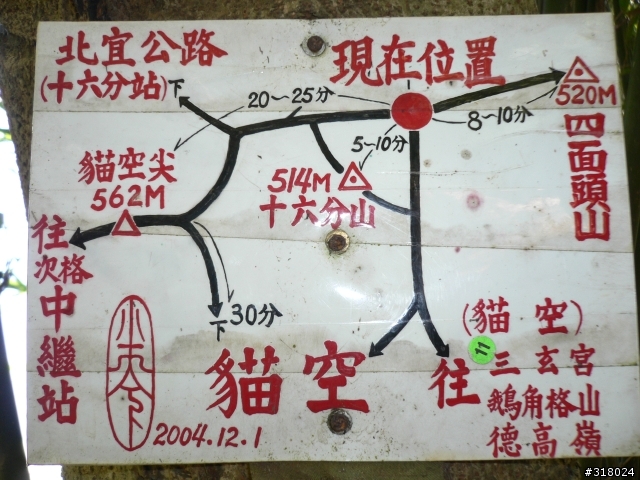 北宜公路
(十六分站)下
現在位置
20～25分
8～10分
520M
四面頭山
5～10分
514M
十六分山
貓空尖
562M
往
次格
中繼站
下 30分
貓空
往
(貓空)
三玄宮
鵝角格山
德高嶺
11
小天下
2004.12.1
#318024